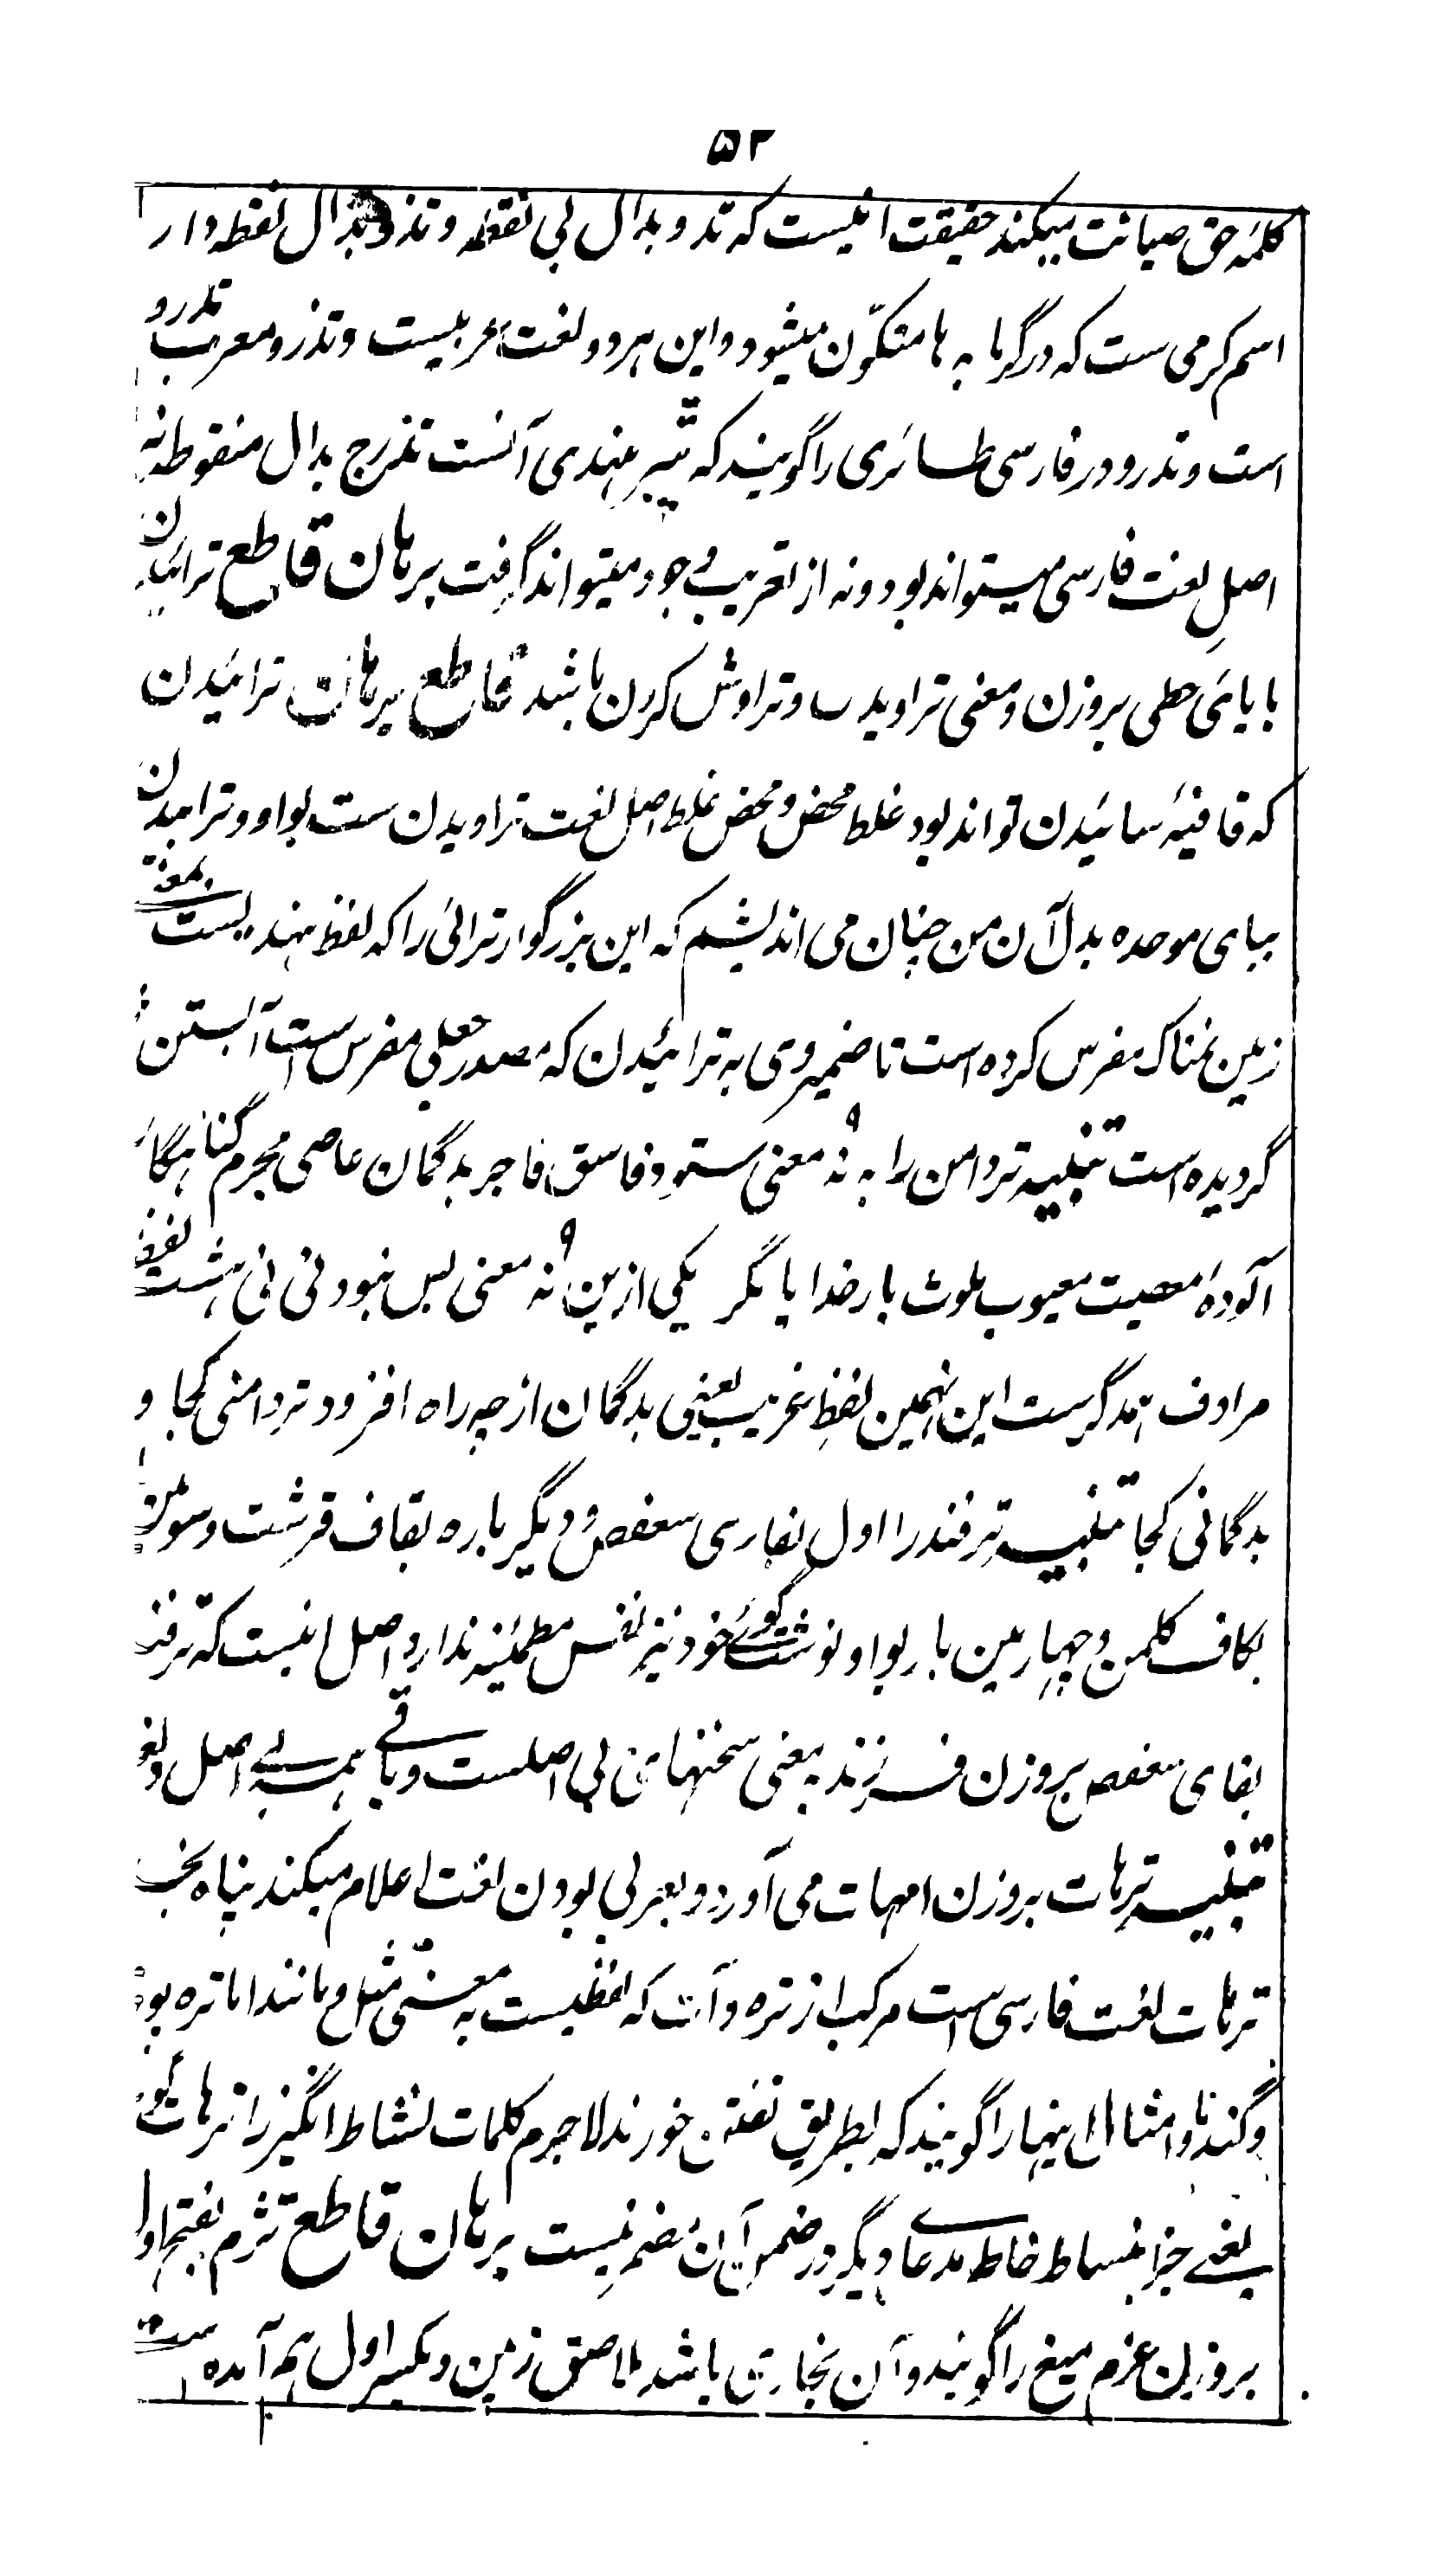 ۵۲
کلمهٔ حق صیانت میکند حقیقت اینست که تدو بدال بی نقطه و تذو بذال نقطه دار
اسم کرمی ست که در گرمابه ها متکوّن میشود و این هر دو لغت عربیست و تذرو معرب تدرو
است و تدرو در فارسی طائری را گویند که تیتر هندی آنست تذرج بذال منقوطه نه
اصلِ لغت فارسی میتواند بود و نه از تعریب وجود میتواند گرفت برهان قاطع ترائیدن
با یائے حطی بروزن و معنی تراویدن و تراوش کردن باشد قاطع برهان ترائیدن
که قافیهٔ سائیدن تواند بود غلط محض و محض غلط اصل لغت تراویدن ست بواو و ترابیدن
ببای موحده بدل آن من چنان می اندیشم که این بزرگوار ترائی را که لفظ هندیست بمعنی
زمین نمناک مفرس کرده است تا ضمیر وی به ترائیدن که مصدر جعلی مفرس است آبستن
گردیده است تنبیه تر دامن را به نه معنی ستود فاسق فاجر بدگمان عاصی مجرم گناهگار
آلودهٔ معصیت معیوب ملوث بار خدایا مگر یکی ازین نه معنی بس نبود نی نی هشت لفظ
مرادف همدگرست این نهمین لفظِ غریب یعنی بدگمان از چه راه افزود تر دامنی کجا و
بدگمانی کجا تنبیه ترفند را اول بفارسی سعفص و دیگر باره بقاف قرشت و سومین
بکاف کلمن و چهارمین بار بواو نوشت گوئے خود نیز نفس مطمئنه ندارد اصل اینست که ترفند
بفای سعفص بروزن فرزند به معنی سخنهای بی اصلست و باقے همه بے اصل و لغو
تنبیه ترهات بروزن امهات می آورد و بعربی بودن لغت اعلام میکند پناه بخدا
ترهات لغت فارسی است مرکب از تره و آت که لفظیست به معنی مثل و مانند اما تره
و گندنا و امثال اینها را گویند که بطریق تفنن خورند لاجرم کلمات نشاط انگیز را ترهات گویند
یعنے جز انبساط خاطر مدعاے دیگر در ضمن آن مضمر نیست برهان قاطع تژم بفتح اول
بروزن عزم میغ را گویند و آن بخاری باشد ملاصق زمین و بکسر اول هم آمده ست